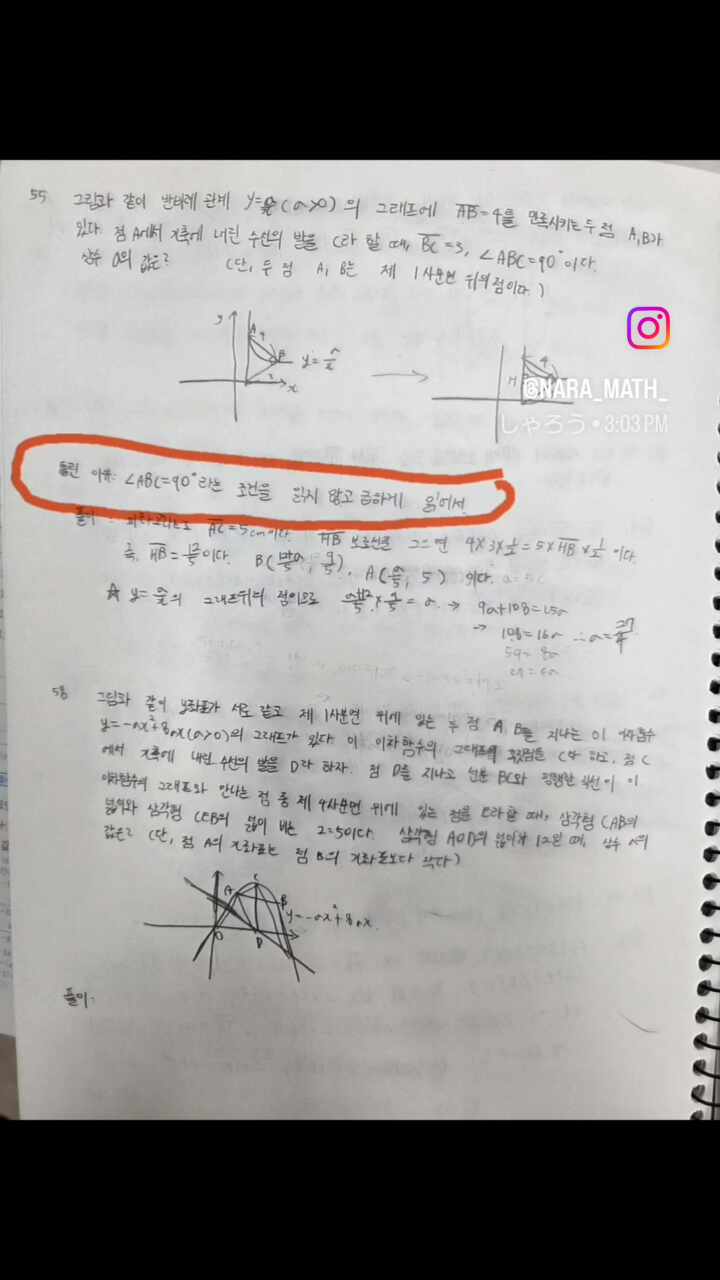 55 그림과 같이 반비례 관계 y=a/x (a>0) 의 그래프에 AB=4를 만족시키는 두 점 A, B가
있다. 점 A에서 x축에 내린 수선의 발을 C라 할 때, BC=3, ∠ABC=90°이다.
상수 a의 값은? (단, 두 점 A, B는 제 1사분면 위의 점이다.)
y A 4 B y=a/x x
4 H
@NARA_MATH_
しゃろう • 3:03 PM
틀린 이유: ∠ABC=90°라는 조건을 읽지 않고 급하게 읽어서.
풀이: AC=5cm이다. HB 보조선을 그으면 4×3×1/2=5×HB×1/2 이다.
즉, HB=12/5이다. B( , 9/5), A(a/5, 5) 이다.
y=a/x의 그래프위의 점이므로 a+12/5 × 9/5 = a → 9a+108=25a
→ 108=16a ∴ a=27/4
58 그림과 같이 y좌표가 서로 같고 제 1사분면 위에 있는 두 점 A, B를 지나는 이 이차함수
y=-ax²+8ax(a>0)의 그래프가 있다. 이 이차함수의 그래프의 꼭짓점을 C라 하고, 점 C
에서 x축에 내린 수선의 발을 D라 하자. 점 D를 지나고 선분 BC와 평행한 직선이 이
이차함수의 그래프와 만나는 점 중 제 4사분면 위에 있는 점을 E라 할 때, 삼각형 CAB의
넓이와 삼각형 CEB의 넓이 비는 2:5이다. 삼각형 AOD의 넓이가 12일 때, 상수 a의
값은? (단, 점 A의 x좌표는 점 B의 x좌표보다 작다)
A C B y=-ax²+8ax O D
풀이.